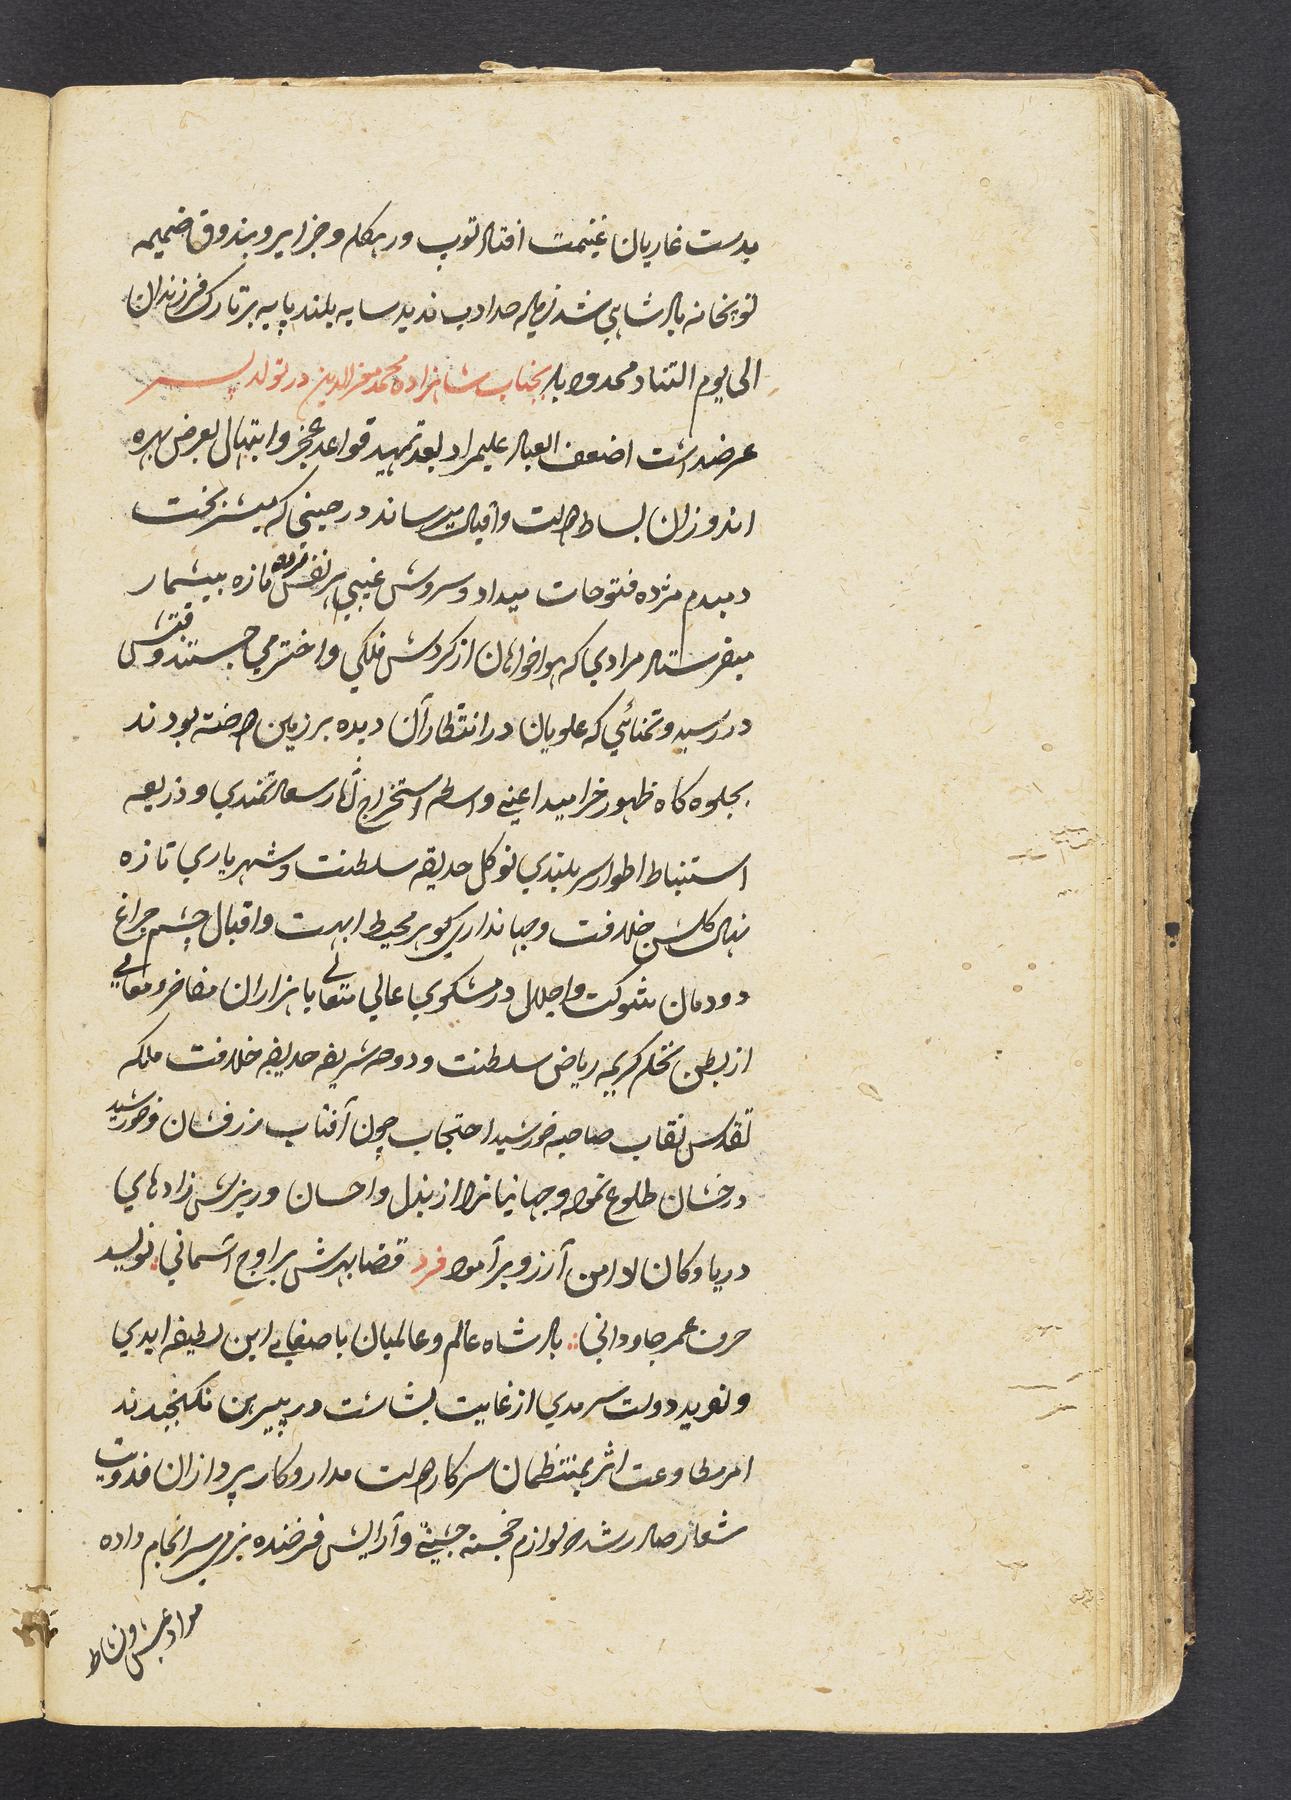 بدست غازیان غنیمت افتاد توپ و رهکله و جزایر و بندوق ضمیمه
توپخانه بادشاهی شد زیاده حد ادب ندید سایه بلند پایه بر تارک فرزندان
الی یوم التناد ممدود باد بجناب شاهزاده محمد معزالدین در تولد پسر
عرضداشت اضعف العباد علیمراد بعد تمهید قواعد عجز و ابتهال بعرض بهره
اندوزان بساط دولت و اقبال میرساند در حینی که مبشر بخت
دمبدم مژده فتوحات میداد و سروش غیبی هر نفس مژده تازه بیشمار
میفرستاد مرادی که هواخواهان از کردش فلکی و اختر می جستند وقتش
در رسید و تمنائی که علویان در انتظار آن دیده بر زمین دوخته بودند
بجلوه کاه ظهور خرامید اعنی واسطه استخراج آثار سعادتمندی و ذریعه
استنباط اطوار سربلندی نوکل حدیقه سلطنت و شهریاری تازه
نهال کلشن خلافت و جهانداری کوهر محیط ابهت و اقبال چشم چراغ
دودمان شوکت و اجلال در مشکوی عالی متعالی با هزاران مفاخر و معالی
از بطن نخله کریمه ریاض سلطنت و دوحه شریفه حدیقه خلافت ملکه
تقدس نقاب صاحبه خورشید احتجاب چون آفتاب زرفشان و خورشید
درخشان طلوع نمود و جهانیانرا از بذل و احسان و ریزش زادهای
دریا و کان دامن آرزو برآمود فرد قضا بهرش بر اوج آسمانی نویسد
حرف عمر جاودانی بادشاه عالم و عالمیان باصغای این لطیفه ابدی
و نوید دولت سرمدی از غایت بشاشت در پیرهن نکنجیدند
امر مطاوعت اثر بمنتظمان سرکار دولت مدار و کارپردازان فدویت
شعار صادر شد که لوازم خجسته جشنی و آرایش فرخنده بزمی سرانجام داده
مواد عیش و نشاط